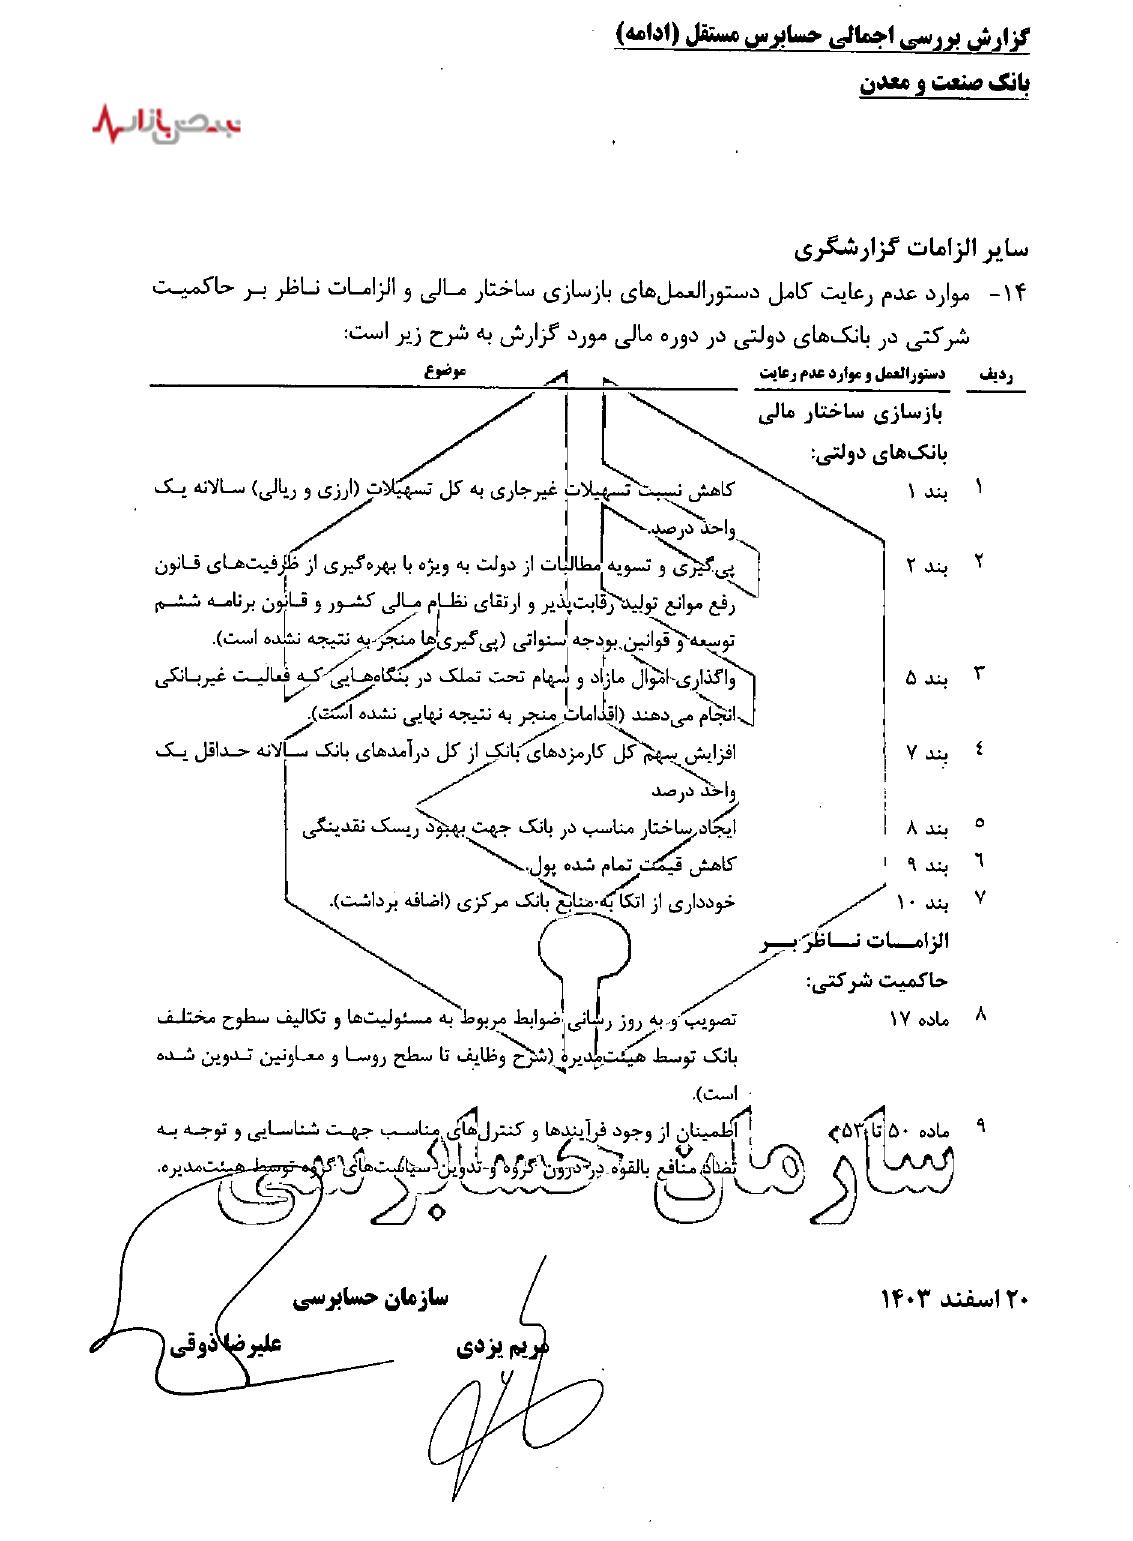 گزارش بررسی اجمالی حسابرس مستقل (ادامه)
بانک صنعت و معدن
نبض بازار
سایر الزامات گزارشگری
۱۴- موارد عدم رعایت کامل دستورالعمل‌های بازسازی ساختار مالی و الزامات ناظر بر حاکمیت
شرکتی در بانک‌های دولتی در دوره مالی مورد گزارش به شرح زیر است:
ردیف دستورالعمل و موارد عدم رعایت موضوع
بازسازی ساختار مالی
بانک‌های دولتی:
۱ بند ۱ کاهش نسبت تسهیلات غیرجاری به کل تسهیلات (ارزی و ریالی) سالانه یک
واحد درصد.
۲ بند ۲ پی‌گیری و تسویه مطالبات از دولت به ویژه با بهره‌گیری از ظرفیت‌های قانون
رفع موانع تولید رقابت‌پذیر و ارتقای نظام مالی کشور و قانون برنامه ششم
توسعه و قوانین بودجه سنواتی (پی‌گیری‌ها منجر به نتیجه نشده است).
۳ بند ۵ واگذاری اموال مازاد و سهام تحت تملک در بنگاه‌هایی که فعالیت غیربانکی
انجام می‌دهند (اقدامات منجر به نتیجه نهایی نشده است).
۴ بند ۷ افزایش سهم کل کارمزدهای بانک از کل درآمدهای بانک سالانه حداقل یک
واحد درصد
۵ بند ۸ ایجاد ساختار مناسب در بانک جهت بهبود ریسک نقدینگی
۶ بند ۹ کاهش قیمت تمام شده پول.
۷ بند ۱۰ خودداری از اتکا به منابع بانک مرکزی (اضافه برداشت).
الزامات ناظر بر
حاکمیت شرکتی:
۸ ماده ۱۷ تصویب و به روز رسانی ضوابط مربوط به مسئولیت‌ها و تکالیف سطوح مختلف
بانک توسط هیئت‌مدیره (شرح وظایف تا سطح روسا و معاونین تدوین شده
است).
۹ ماده ۵۰ تا ۵۳ اطمینان از وجود فرآیندها و کنترل‌های مناسب جهت شناسایی و توجه به
تضاد منافع بالقوه در درون گروه و تدوین سیاست‌های گروه توسط هیئت‌مدیره.
سازمان حسابرسی
۲۰ اسفند ۱۴۰۳ سازمان حسابرسی
مریم یزدی علیرضا ذوقی